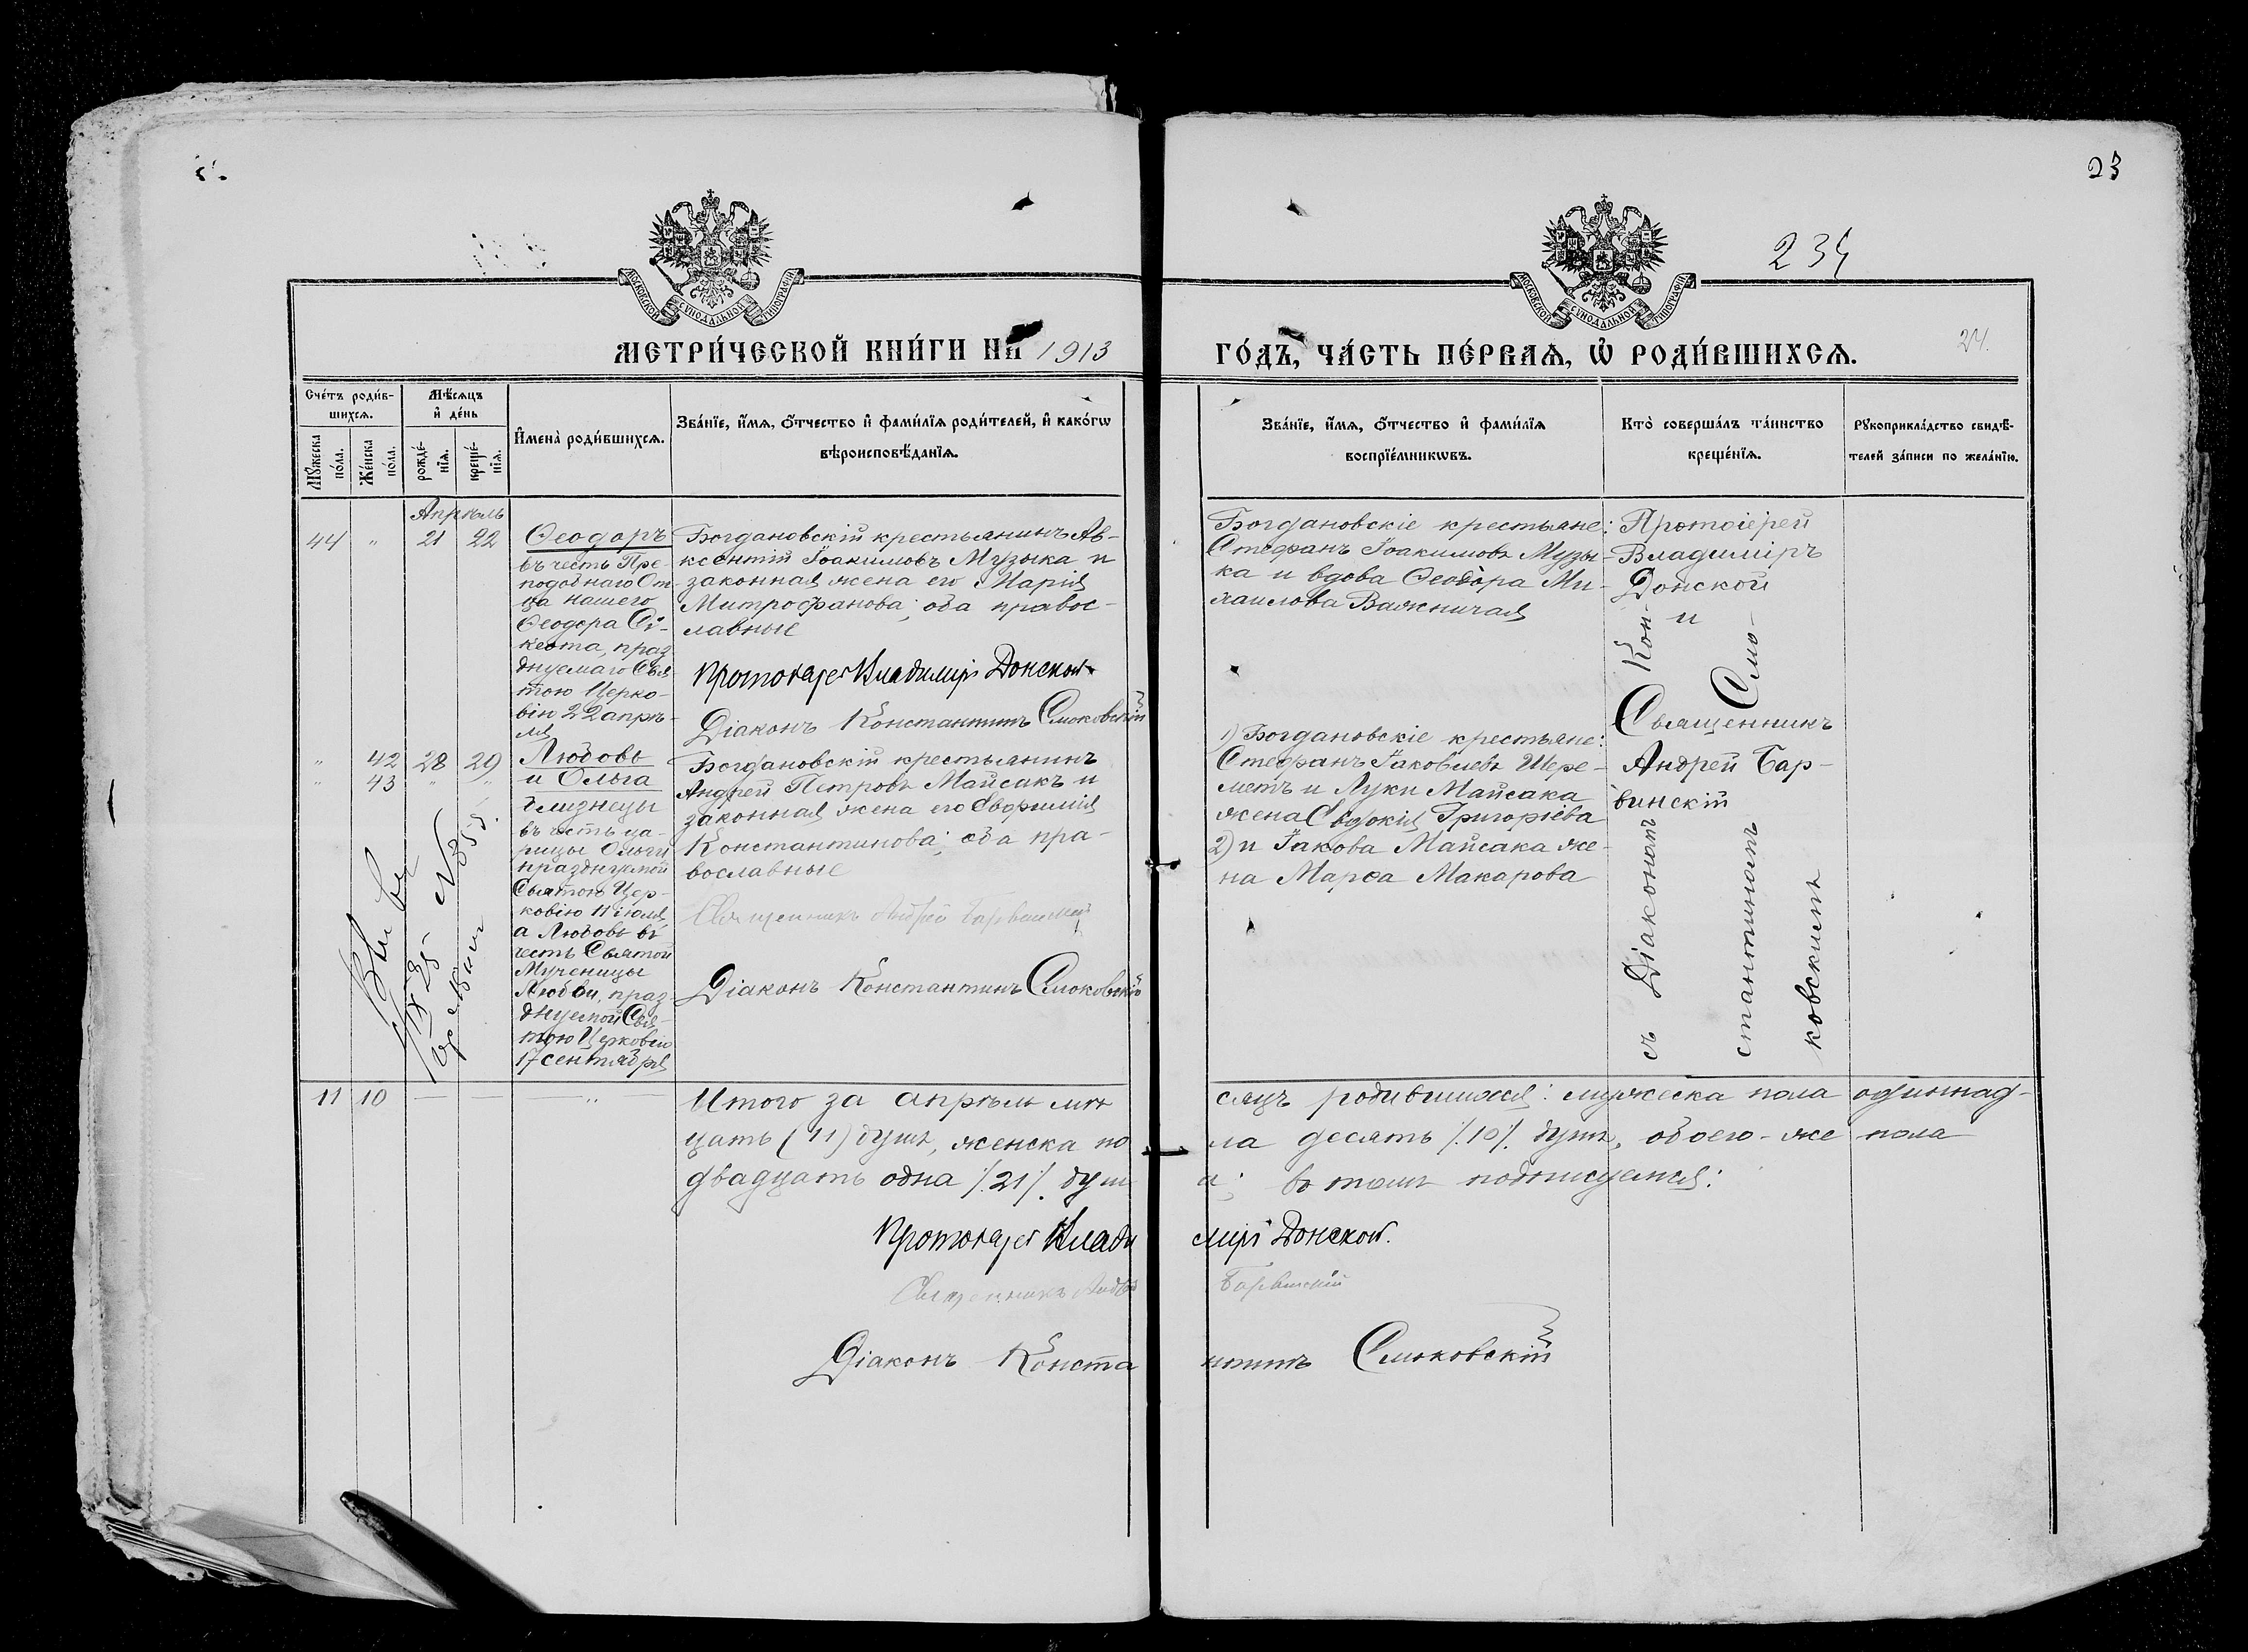 23
234
24.
МОСКОВСКОЙ СУНОДАЛЬНОЙ ТИПОГРАФІИ
МОСКОВСКОЙ СУНОДАЛЬНОЙ ТИПОГРАФІИ
МЕТРИ́ЧЕСКОЙ КНИ́ГИ НА 1913
ГО́ДЪ, ЧА́СТЬ ПЕ́РВАѦ, Ѡ РОДИ́ВШИХСѦ.
Сче́тъ роди́в-
шихсѧ.
Мꙋжеска
по́ла.
Же́нска
по́ла.
Мѣ́сѧцъ
и де́нь
рожде́-
нїѧ.
креще́-
нїѧ.
Имена̀ роди́вшихсѧ.
Зва́нїе, и́мѧ, о́тчество и фами́лїѧ роди́телей, и како́гѡ
вѣроисповѣ́данїѧ.
Зва́нїе, и́мѧ, о́тчество и фами́лїѧ
воспрїе́мникѡвъ.
Кто̀ соверша́лъ та́инство
креще́нїѧ.
Рꙋкоприкла́дство свидѣ́-
телей за́писи по жела́нїю.
Апрѣль
44 " 21 22
Ѳеодоръ
въ честь Пре-
подобнаго От-
ца нашего
Ѳеодора Си-
кеота, праз-
днуемаго Свя-
тою Церко-
вію 22 апрѣ-
ля
Богдановскій крестьянинъ Ав-
ксентій Іоакимовъ Музыка и
законная жена его Марія
Митрофанова; оба правос-
лавные
Протоіерей Владиміръ Донской
Діаконъ Константинъ Смоковскій
Богдановскіе крестьяне:
Стефанъ Іоакимовъ Музы-
ка и вдова Ѳеодора Ми-
хаилова Важничая
Протоіерей
Владиміръ
Донской
и
Священникъ
Андрей Бар-
винскій
съ Діакономъ Кон-
стантиномъ Смо-
ковскимъ
" 42 28 29
" 43 " "
Любовь
и Ольга
близнецы
въ честь ца-
рицы Ольги
празднуемой
Святою Цер-
ковію 11 іюля,
а Любовь въ
честь Святой
Мученицы
Любви, праз-
днуемой Свя-
тою Церковію
17 сентября
Богдановскій крестьянинъ
Андрей Петровъ Майсакъ и
законная жена его Евфимія
Константинова; оба пра-
вославные
Священникъ Андрей Барвинскій
Діаконъ Константинъ Смоковскій
1) Богдановскіе крестьяне:
Стефанъ Іаковлевъ Шере-
метъ и Луки Майсака
жена Евдокія Григоріева
2) и Іакова Майсака же-
на Марѳа Макарова
11 10 — — " —
Итого за апрѣль мѣ сяцъ родившихся: мужеска пола одиннад-
цать (11) душъ, женска по ла десять /.10/. душъ, обоего-же пола
двадцать одна /.21/. душ а; въ томъ подписуемся:
Протоіерей Влади міръ Донской.
Священникъ Андрей Барвинскій
Діаконъ Конста нтинъ Смоковскій